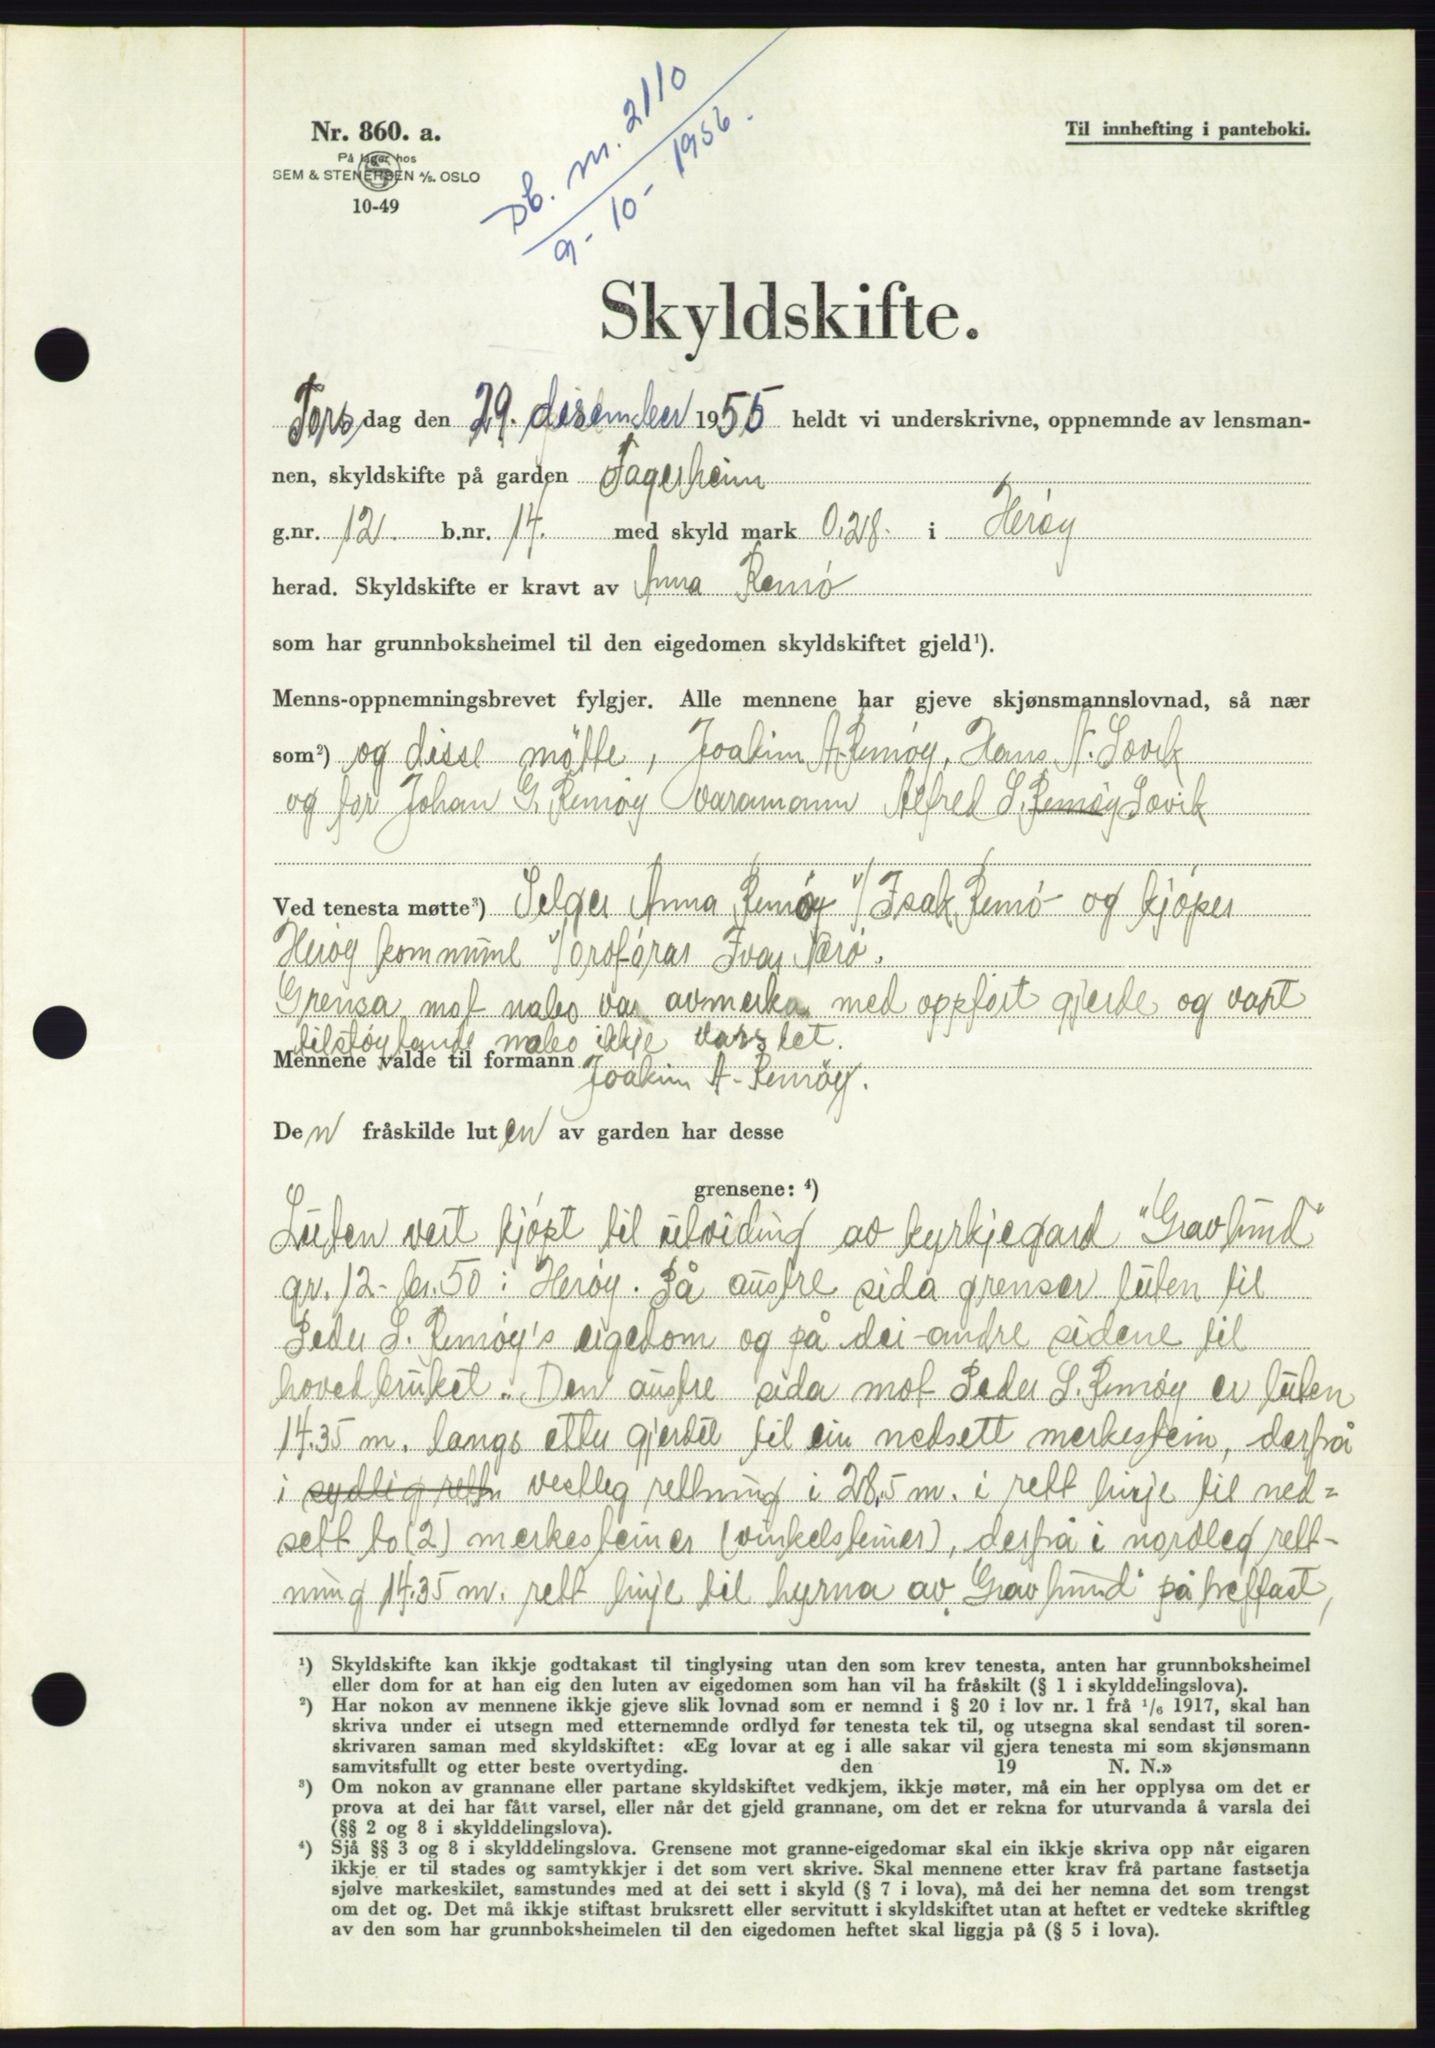 Nr. 860. a.
På lager hos
SEM & STENERSEN A/S. OSLO
10-49
Db. nr. 2110
9-10-1956.
Til innhefting i panteboki.
Skyldskifte.
Torsdag den 29. desember 1955 heldt vi underskrivne, oppnemnde av lensman-
nen, skyldskifte på garden Fagerheim
g.nr. 12. b.nr. 14. med skyld mark 0,28. i Herøy
herad. Skyldskifte er kravt av Anna Remø
som har grunnboksheimel til den eigedomen skyldskiftet gjeld¹).
Menns-oppnemningsbrevet fylgjer. Alle mennene har gjeve skjønsmannslovnad, så nær
som²) og disse møtte, Joakim A. Remøy, Hans N. Søvik
og for Johan G. Remøy varamann Alfred S. Remøy Søvik
Ved tenesta møtte³) Selger Anna Remøy v/ Isak Remø og kjøper
Herøy kommune v/ ordførar Ivar Nerø.
Grensa mot nabo var avmerka med oppført gjerde og vart
tilstøytande nabo ikkje varslet.
Mennene valde til formann Joakim A. Remøy.
Den fråskilde luten av garden har desse
grensene: ⁴)
Luten vert kjøpt til utviding av kyrkjegard "Gravlund"
gr. 12 - br. 50 i Herøy. På austre sida grenser luten til
Peder S. Remøy's eigedom og på dei andre sidene til
hovedbruket. Den austre sida mot Peder S. Remøy er luten
14.35 m. langs etter gjerdet til ein nedsett merkestein, derfrå
i sydlig rettn vestleg rettning i 28,5 m. i rett linje til ned=
sett to (2) merkesteiner (vinkelsteiner), derfrå i nordleg rett-
ning 14.35 m. rett linje til hyrna av "Gravlund" på treffast,
¹) Skyldskifte kan ikkje godtakast til tinglysing utan den som krev tenesta, anten har grunnboksheimel
eller dom for at han eig den luten av eigedomen som han vil ha fråskilt (§ 1 i skylddelingslova).
²) Har nokon av mennene ikkje gjeve slik lovnad som er nemnd i § 20 i lov nr. 1 frå ¹/₆ 1917, skal han
skriva under ei utsegn med etternemnde ordlyd før tenesta tek til, og utsegna skal sendast til soren-
skrivaren saman med skyldskiftet: «Eg lovar at eg i alle sakar vil gjera tenesta mi som skjønsmann
samvitsfullt og etter beste overtyding. den 19 N. N.»
³) Om nokon av grannane eller partane skyldskiftet vedkjem, ikkje møter, må ein her opplysa om det er
prova at dei har fått varsel, eller når det gjeld grannane, om det er rekna for uturvanda å varsla dei
(§§ 2 og 8 i skylddelingslova).
⁴) Sjå §§ 3 og 8 i skylddelingslova. Grensene mot granne-eigedomar skal ein ikkje skriva opp når eigaren
ikkje er til stades og samtykkjer i det som vert skrive. Skal mennene etter krav frå partane fastsetja
sjølve markeskilet, samstundes med at dei sett i skyld (§ 7 i lova), må dei her nemna det som trengst
om det og. Det må ikkje stiftast bruksrett eller servitutt i skyldskiftet utan at heftet er vedteke skriftleg
av den som har grunnboksheimelen til den eigedomen heftet skal liggja på (§ 5 i lova).